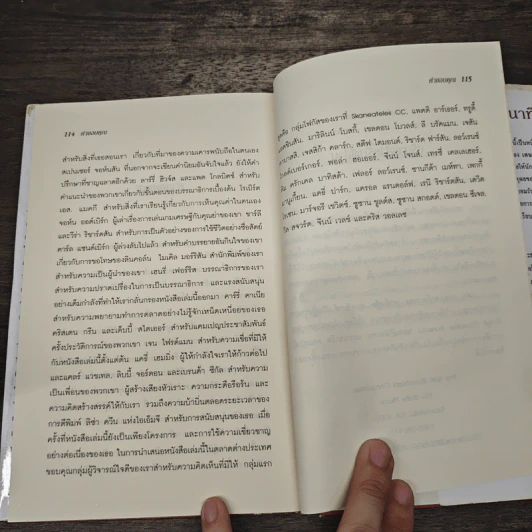 114 คำขอบคุณ
สำหรับสิ่งที่เธอสอนเรา เกี่ยวกับที่มาของความเคารพนับถือในตนเอง
สเปนเซอร์ จอห์นสัน ที่นอกจากจะเขียนคำนิยมอันจับใจแล้ว ยังให้คำ
ปรึกษาที่ชาญฉลาดอีกด้วย ลาร์รี่ ฮิวจ์ส และแพต โกลบิตซ์ สำหรับ
คำแนะนำของพวกเขาเกี่ยวกับขั้นตอนของบรรณาธิการเบื้องต้น โรเบิร์ต
เอส. แมคกี สำหรับสิ่งที่เราเรียนรู้เกี่ยวกับการเห็นคุณค่าในตนเอง
จอห์น ออค์เบิร์ก ผู้เล่าเรื่องการเล่นเกมเศรษฐีกับคุณย่าของเขา ชาร์ลี
และวีร่า ริชาร์ดสัน สำหรับการเป็นตัวอย่างของการใช้ชีวิตอย่างซื่อสัตย์
คาร์ล แซนด์เบิร์ก ผู้ล่วงลับไปแล้ว สำหรับคำบรรยายอันกินใจของเขา
เกี่ยวกับการขอโทษของลินคอล์น ไมเคิล มอร์ริสัน สำนักพิมพ์ของเรา
สำหรับความเป็นผู้นำของเขา เฮนรี่ เฟอร์ริส บรรณาธิการของเรา
สำหรับความปราดเปรื่องในการเป็นบรรณาธิการ และแรงสนับสนุน
อย่างเต็มกำลังที่ทำให้เรากลั่นกรองหนังสือเล่มนี้ออกมา คาร์รี่ คาเนีย
สำหรับความพยายามทำการตลาดอย่างไม่รู้จักเหน็ดเหนื่อยของเธอ
คริสเตน กรีน และเด็บบี้ สไตเออร์ สำหรับแคมเปญประชาสัมพันธ์
ครั้งประวัติการณ์ของพวกเขา เจน ไฟรด์แมน สำหรับความเชื่อที่มีให้
กับหนังสือเล่มนี้ตั้งแต่ต้น แคธี่ เฮมมิ่ง ผู้ให้กำลังใจเราให้ก้าวต่อไป
และแคลร์ แวชเทล, ลิบบี้ จอร์ดอน และเบรนด้า ซีกัล สำหรับความ
เป็นเพื่อนของพวกเขา ผู้สร้างเสียงหัวเราะ ความกระตือรือร้น และ
ความคิดสร้างสรรค์ให้กับเรา รวมถึงความบ้าบิ่นตลอดระยะเวลาของ
การตีพิมพ์ ลิซ่า ควีน แห่งไอเอ็มจี สำหรับการสนับสนุนของเธอ เมื่อ
ครั้งที่หนังสือเล่มนี้ยังเป็นเพียงโครงการ และการใช้ความเชี่ยวชาญ
อย่างต่อเนื่องของเธอ ในการนำเสนอหนังสือเล่มนี้ในตลาดต่างประเทศ
ขอบคุณกลุ่มผู้วิจารณ์ใจดีของเราสำหรับความคิดเห็นที่มีให้ กลุ่มแรก
คำขอบคุณ 115
กลุ่มโฟกัสของเราที่ Skaneateles CC, แพตติ อาร์เธอร์, ทรูดี้
มาริลินน์ โบสกี้, เชลดอน โบวลส์, ลี บรัคแมน, เจสัน
เจสสิก้า คลาร์ก, สตีฟ ไดมอนด์, ริชาร์ด ฟาร์สัน, ลอว์เรนซ์
พอล่า ฮอเออร์, จีนน์ โจนส์, เทรซี่ เคลเลเฮอร์,
บาทิสต้า, เฟลอร์ ลอว์เรนซ์, ซานภีต้า เมห์ทา, เพกกี้
แคธี่ ปาร์ก, แครอล แรนดอล์ฟ, เรนี ริชาร์ดสัน, เดวิด
มาร์จอรี่ เชวิตซ์, ซูซาน รูลส์ด, ซูซาน สกอตต์, เชลดอน ซีเจล,
สจวร์ต, จีนน์ เวลช์ และคริส วอลเลซ
นาที